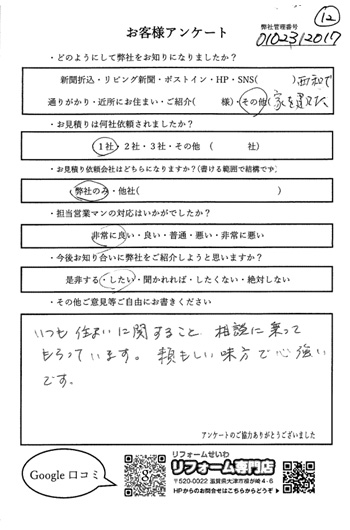 ⑫
お客様アンケート
弊社管理番号
0102312017
・どのようにして弊社をお知りになりましたか？
新聞折込・リビング新聞・ポストイン・HP・SNS( )
通りがかり・近所にお住まい・ご紹介( 様)・その他(家を買った
・お見積りは何社依頼されましたか？
1社・2社・3社・その他 ( 社)
・お見積り依頼会社はどちらになりますか？(書ける範囲で結構です。
弊社のみ・他社( )
・担当営業マンの対応はいかがでしたか？
非常に良い・良い・普通・悪い・非常に悪い
・今後お知り合いに弊社をご紹介しようと思いますか？
是非する・したい・聞かれれば・したくない・絶対しない
・その他ご意見等ご自由にお書きください
いつも住まいに関すること 相談に乗って
もらっています。頼もしい味方で心強い
です。
アンケートのご協力ありがとうございました
Google 口コミ
g
リフォームせいわ
リフォーム専門店
〒520-0022 滋賀県大津市柳が崎4-6
HPからのお問合せはこちらからどうぞ